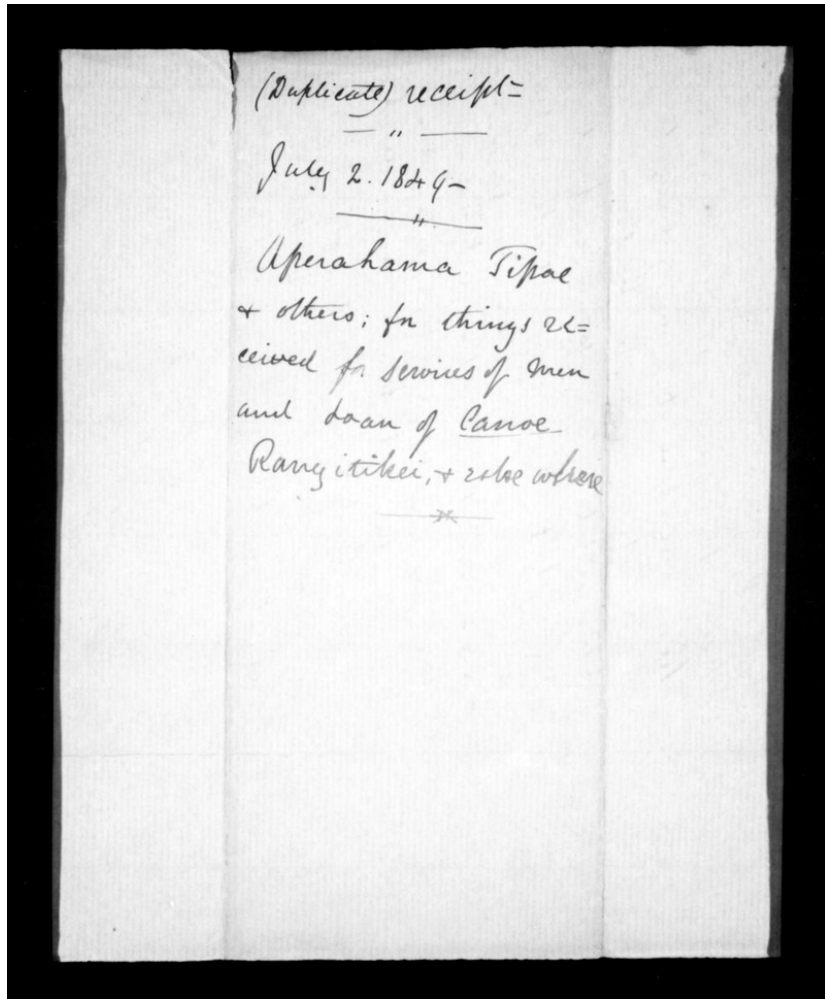 (Duplicate) receipt=
July 2. 1849-
Aperahama Tipae
& others; for things re=
ceived for services of men
and loan of Canoe
Rangitikei, & else where